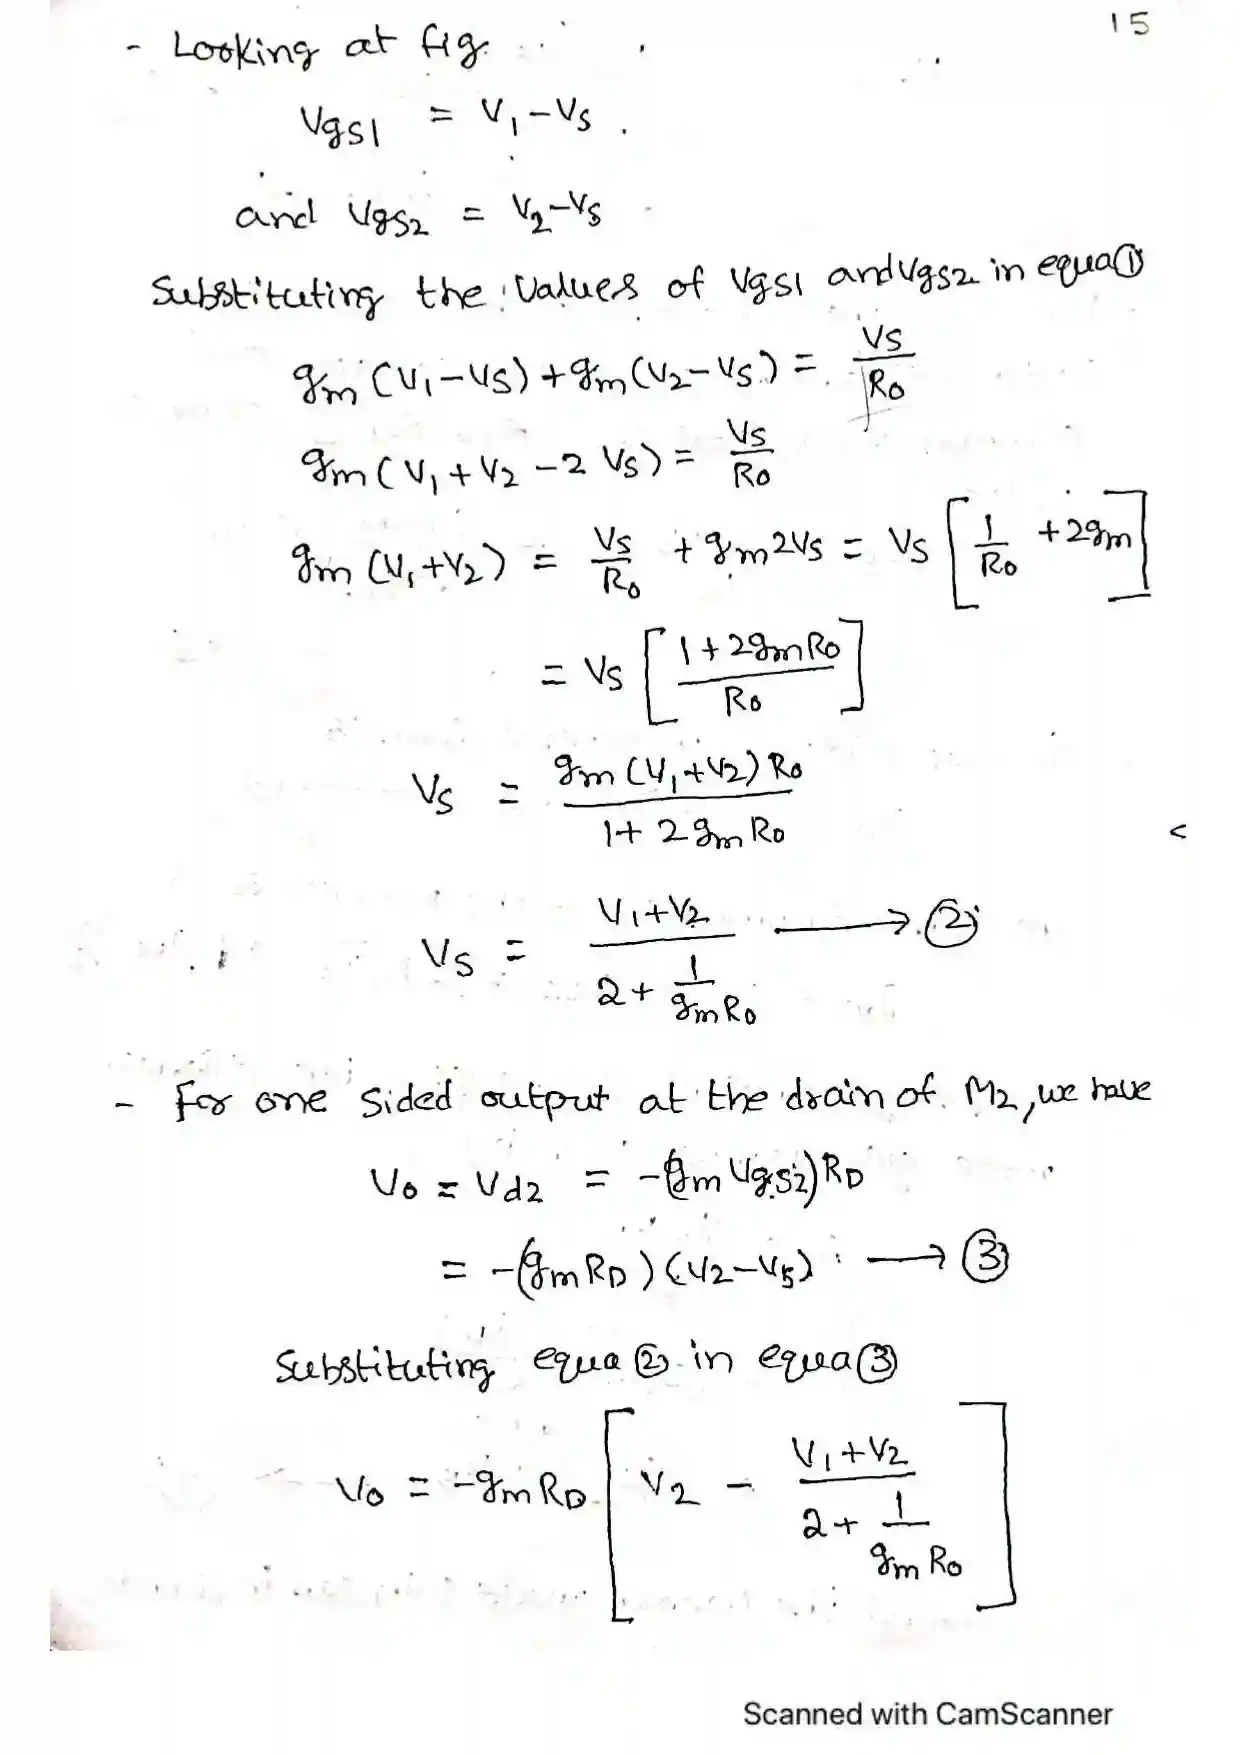 15
- Looking at fig.
Vgs1 = V1 - Vs.
and Vgs2 = V2 - Vs
Substituting the values of Vgs1 and Vgs2 in equa ①
gm (V1 - Vs) + gm (V2 - Vs) = Vs/Ro
gm (V1 + V2 - 2 Vs) = Vs/Ro
gm (V1 + V2) = Vs/Ro + gm2Vs = Vs [1/Ro + 2gm]
= Vs [(1 + 2gmRo)/Ro]
Vs = gm (V1 + V2) Ro / (1 + 2gmRo)
Vs = (V1 + V2) / (2 + 1/(gmRo)) → ②
- For one sided output at the drain of M2, we have
Vo = Vd2 = -(gm Vgs2) RD
= -(gm RD) (V2 - Vs) → ③
Substituting equa ② in equa ③
Vo = -gm RD [V2 - (V1 + V2) / (2 + 1/(gm Ro))]
Scanned with CamScanner